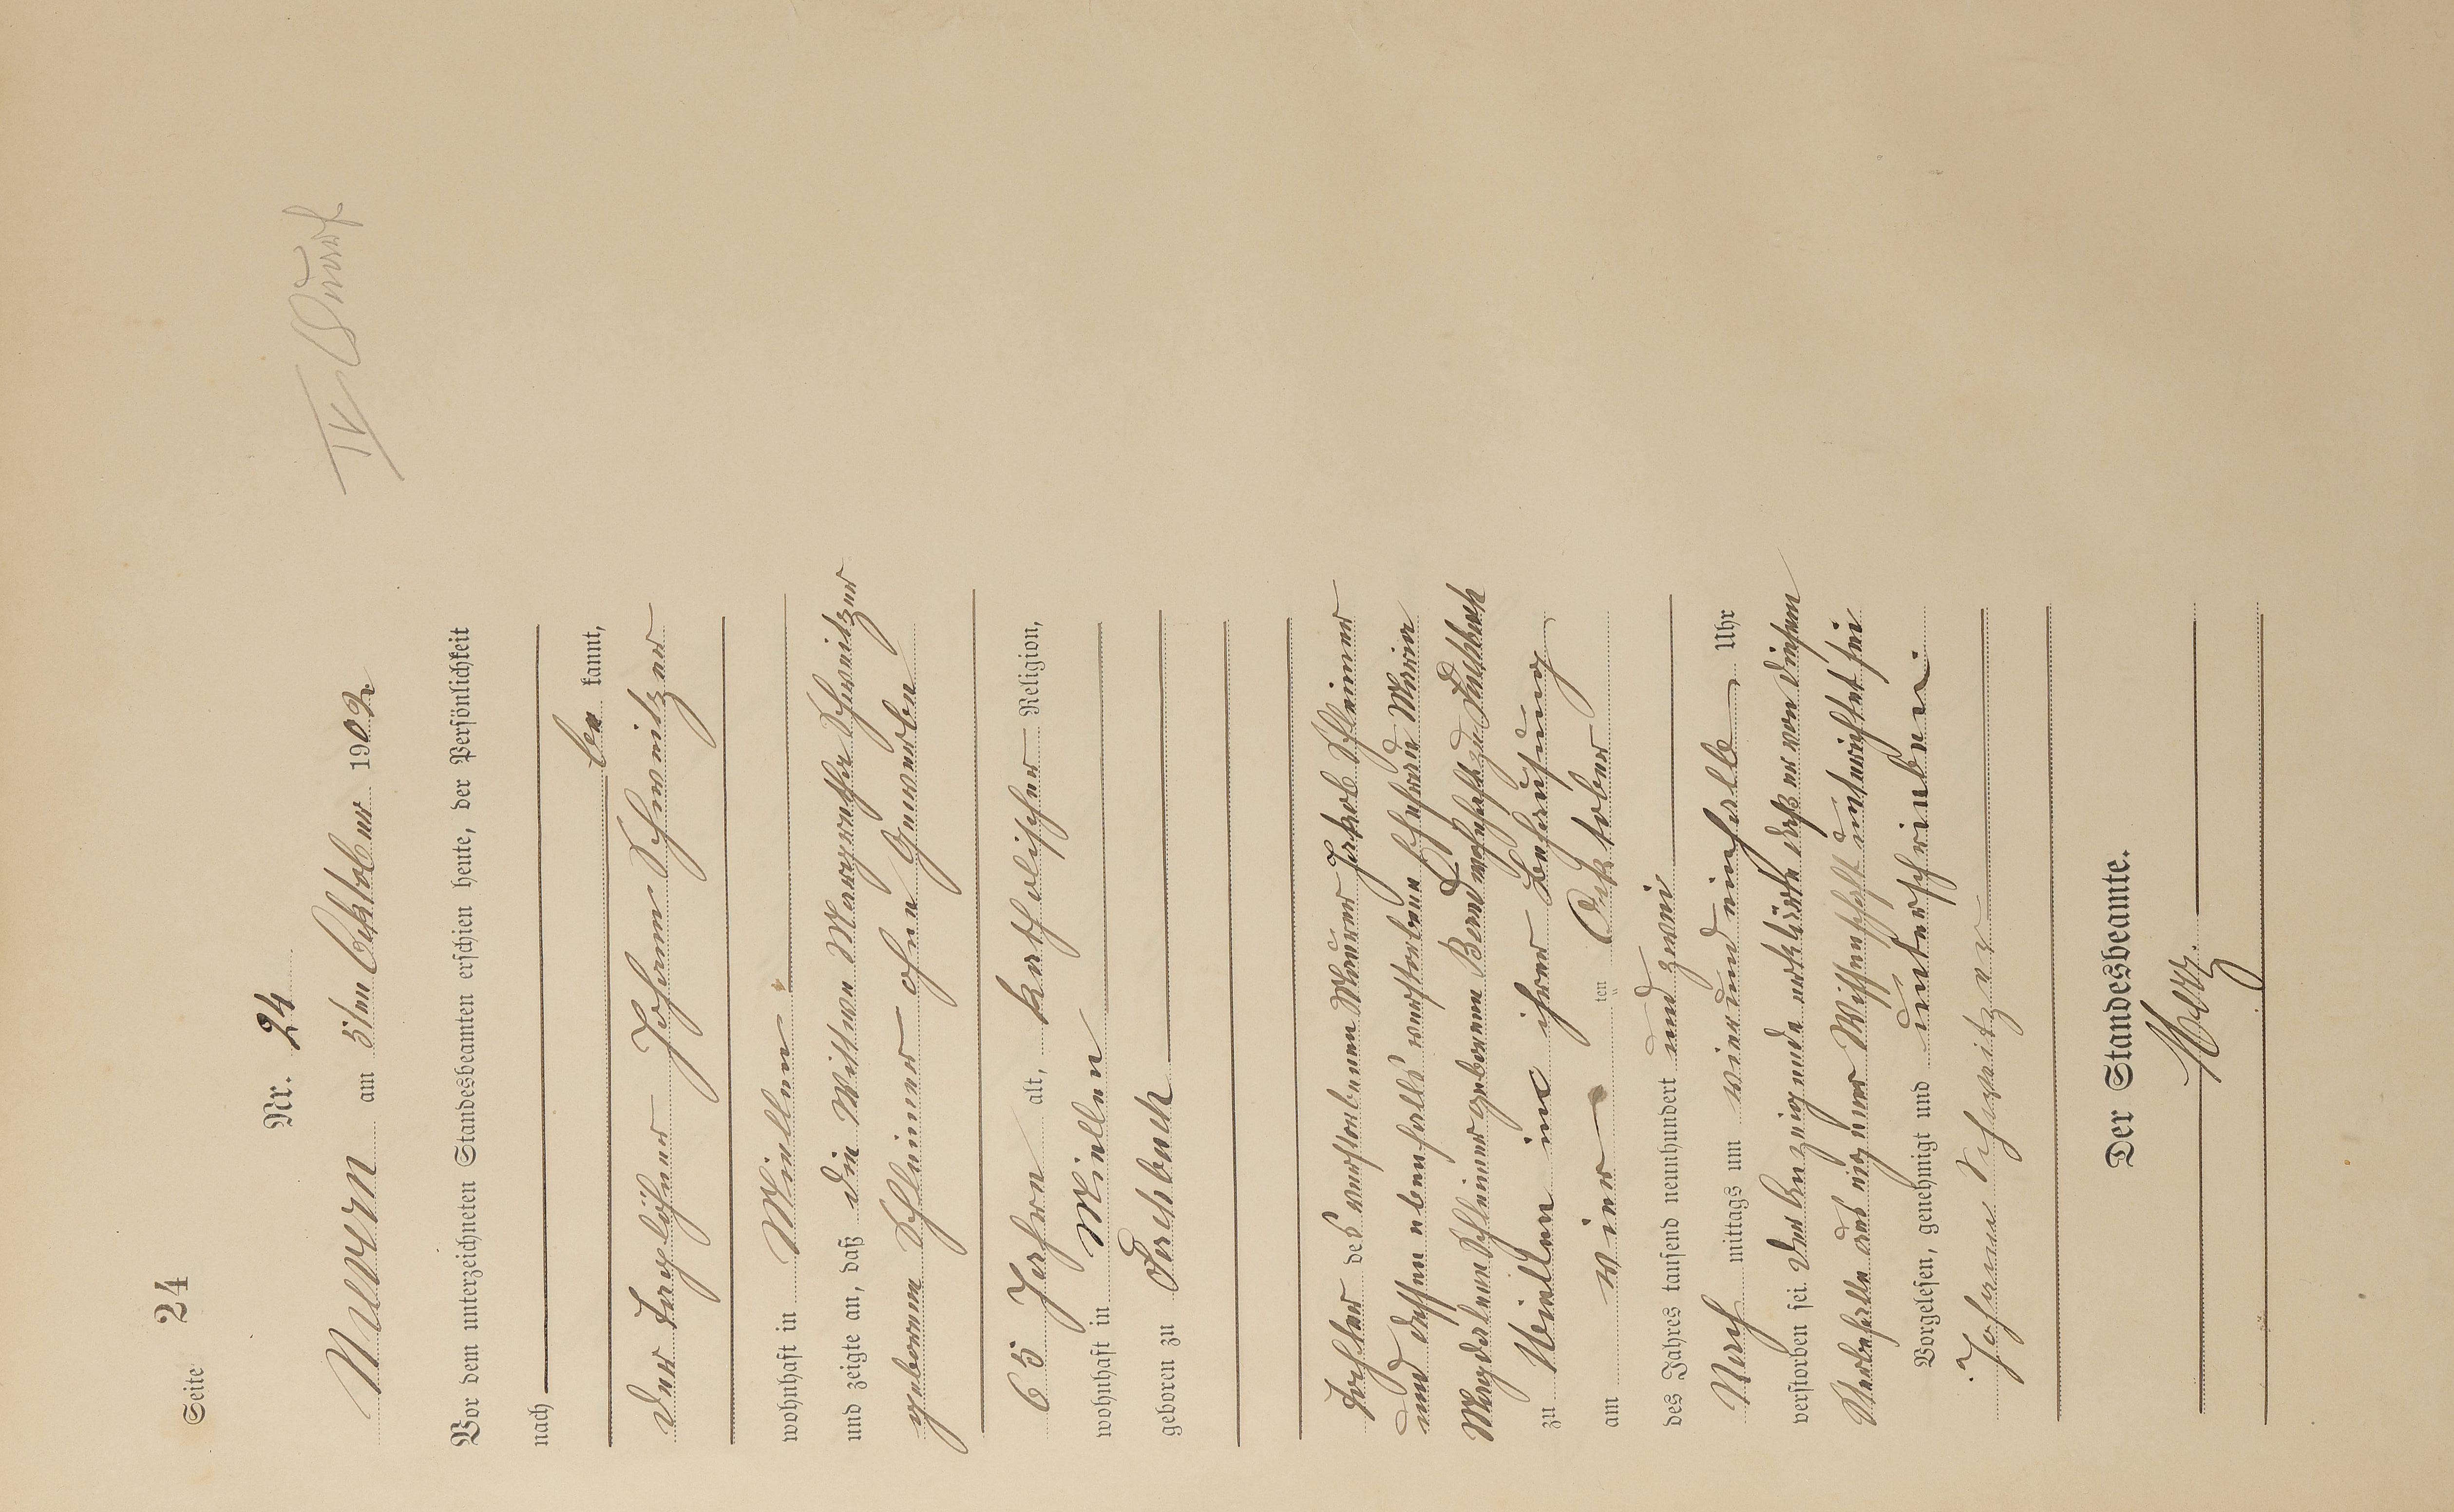 Seite 24
Nr. 24
Malvern am 5ten Oktober 1902
Vor dem unterzeichneten Standesbeamten erschien heute, der Persönlichkeit
nach
be kannt,
der Taglöhner Johann Schweitzer
wohnhaft in Miellen
und zeigte an, daß die Wittwe Margaretha Schweitzer
geborenen Schleimer ohne Gewerbe
65 Jahre alt, katholischer Religion,
wohnhaft in Miellen
geboren zu Fachbach
Tochter des verstorbenen Maurer Jakob Schleimer
und dessen ebenfalls verstorbene Ehefrau Maria
Magdalena Schleimer geborenen Bernd wohnhaft zu Fachbach
zu Miellen in ihrer Behausung
am vier ten Oktober
des Jahres tausend neunhundert und zwei
Nach mittags um vier und einhalb Uhr
verstorben sei. Der Anzeigende erklärte daß er von diesem
Sterbefalle aus eigener Wissenschaft unterrichtet sei
Vorgelesen, genehmigt und unterschrieben
Johann Schweitzer
Der Standesbeamte.